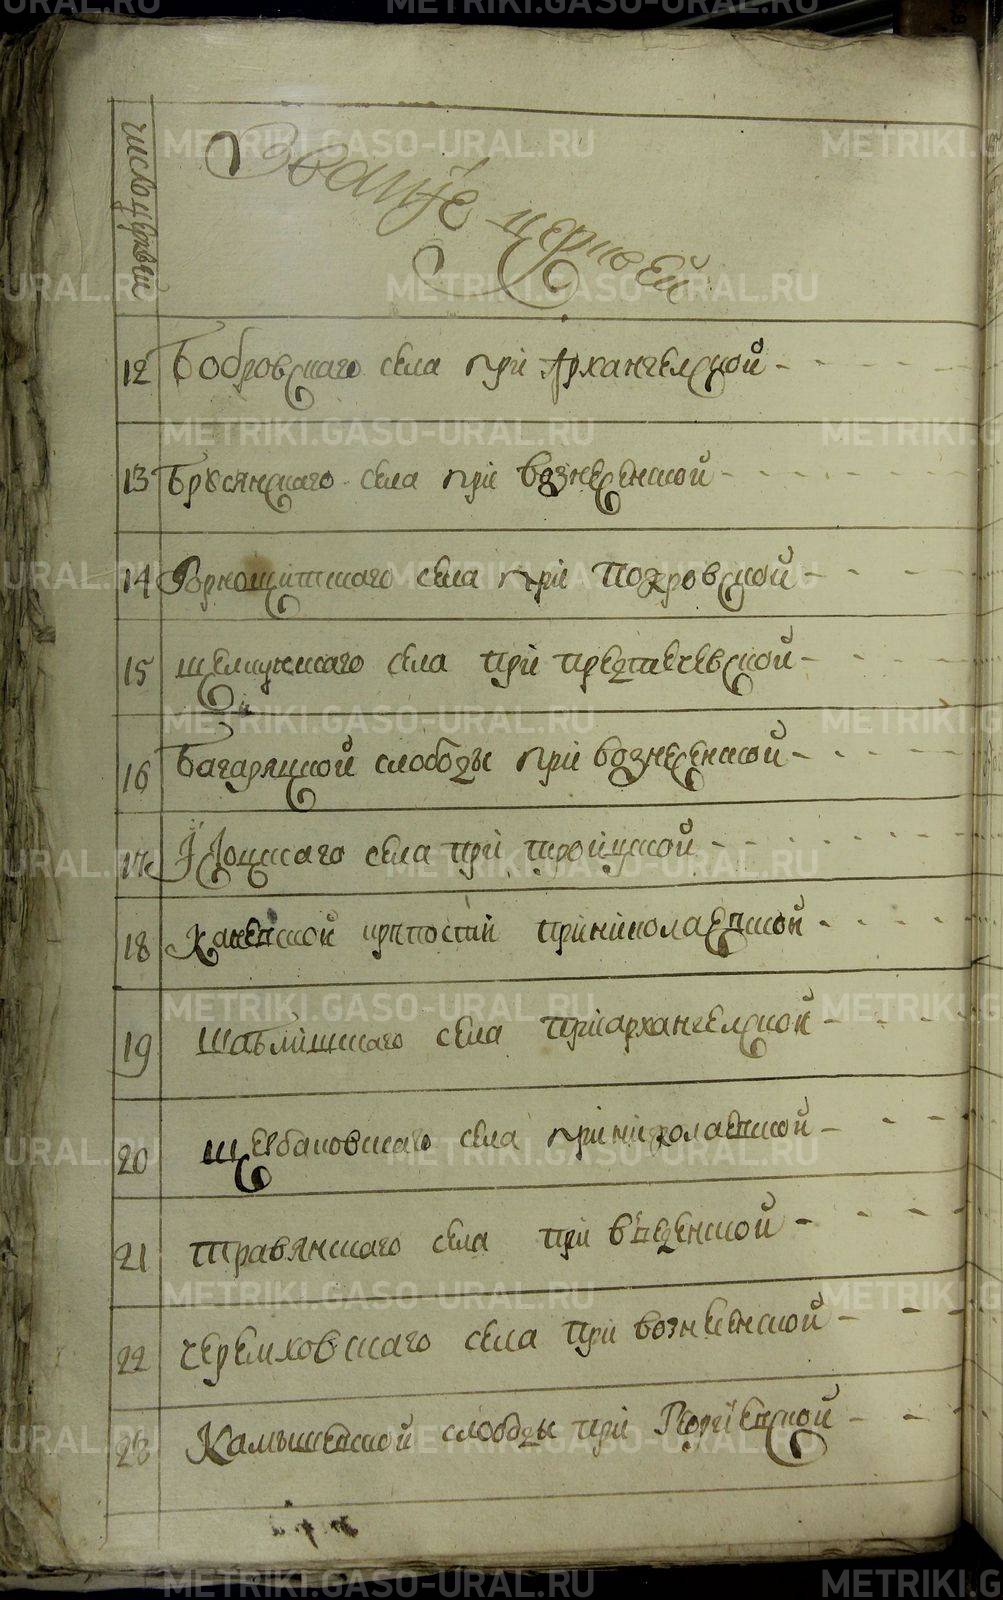 число церквей
Званїе церквей
12 Бобровскаго села при Архангелской
13 Брусянскаго села при вознесенской
14 Горнощитскаго села при Покровской
15 щелкунскаго села при предтечевской
16 Багаряцкой слободы при вознесенской
17 села при троицкой
18 крѣпости при николаевской
19 села при архангелской
20 щербаковскаго села при николаевской
21 травянскаго села при введенской
22 черемховскаго села при вознесенской
23 Камышевской слободы при Георгїевской
METRIKI.GASO-URAL.RU